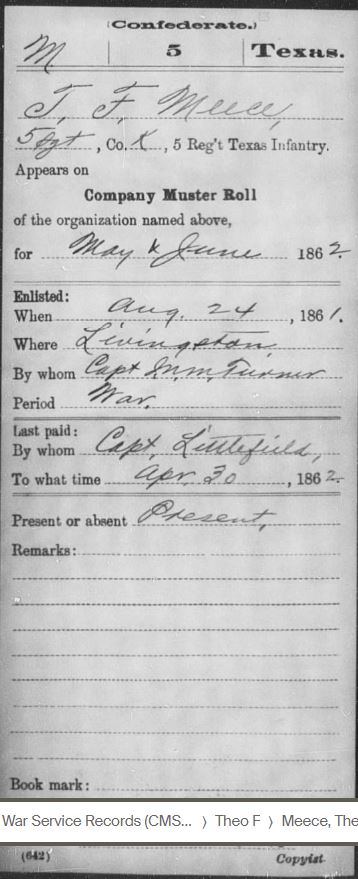 (Confederate.)
M | 5 | Texas.
T. F. Meece,
5 Sgt, Co. K, 5 Reg't Texas Infantry.
Appears on
Company Muster Roll
of the organization named above,
for May & June 1862.
Enlisted:
When Aug. 24, 1861.
Where Livingston
By whom Capt Turner
Period War.
Last paid:
By whom Capt. Littlefield,
To what time Apr. 30, 1862.
Present or absent Present,
Remarks:
Book mark:
War Service Records (CMS... › Theo F › Meece, The
(642) Copyist.